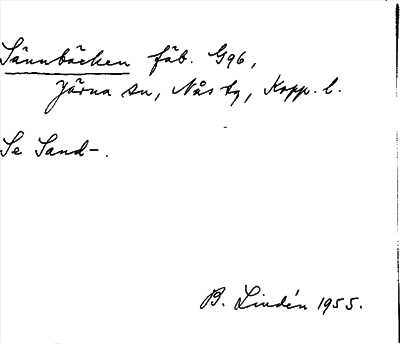 Sännbäcken fäb. G96,
Järna sn, Nås tg, Kopp. l.
Se Sand-.
B. Lindén 1955.